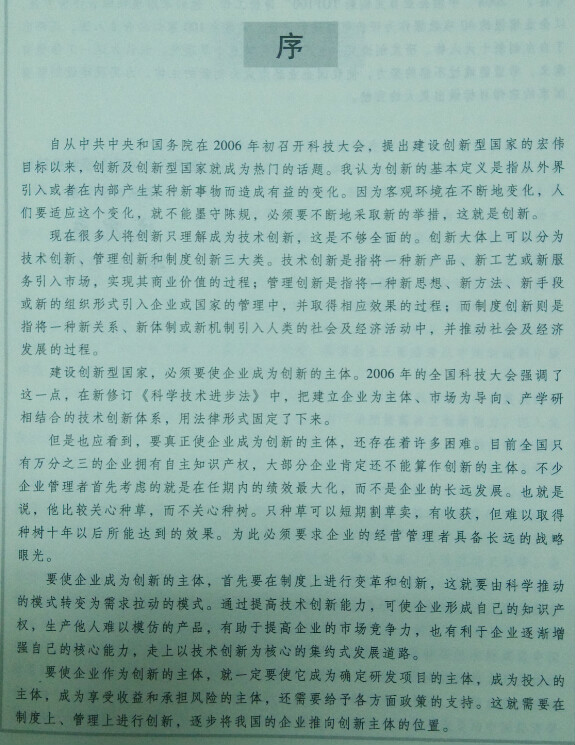 序
自从中共中央和国务院在2006年初召开科技大会，提出建设创新型国家的宏伟
目标以来，创新及创新型国家就成为热门的话题。我认为创新的基本定义是指从外界
引入或者在内部产生某种新事物而造成有益的变化。因为客观环境在不断地变化，人
们要适应这个变化，就不能墨守陈规，必须要不断地采取新的举措，这就是创新。
现在很多人将创新只理解成为技术创新，这是不够全面的。创新大体上可以分为
技术创新、管理创新和制度创新三大类。技术创新是指将一种新产品、新工艺或新服
务引入市场，实现其商业价值的过程；管理创新是指将一种新思想、新方法、新手段
或新的组织形式引入企业或国家的管理中，并取得相应效果的过程；而制度创新则是
指将一种新关系、新体制或新机制引入人类的社会及经济活动中，并推动社会及经济
发展的过程。
建设创新型国家，必须要使企业成为创新的主体。2006年的全国科技大会强调了
这一点，在新修订《科学技术进步法》中，把建立企业为主体、市场为导向、产学研
相结合的技术创新体系，用法律形式固定了下来。
但是也应看到，要真正使企业成为创新的主体，还存在着许多困难。目前全国只
有万分之三的企业拥有自主知识产权，大部分企业肯定还不能算作创新的主体。不少
企业管理者首先考虑的就是在任期内的绩效最大化，而不是企业的长远发展。也就是
说，他比较关心种草，而不关心种树。只种草可以短期割草卖，有收获，但难以取得
种树十年以后所能达到的效果。为此必须要求企业的经营管理者具备长远的战略
眼光。
要使企业成为创新的主体，首先要在制度上进行变革和创新，这就要由科学推动
的模式转变为需求拉动的模式。通过提高技术创新能力，可使企业形成自己的知识产
权，生产他人难以模仿的产品，有助于提高企业的市场竞争力，也有利于企业逐渐增
强自己的核心能力，走上以技术创新为核心的集约式发展道路。
要使企业作为创新的主体，就一定要使它成为确定研发项目的主体，成为投入的
主体，成为享受收益和承担风险的主体，还需要给予各方面政策的支持。这就需要在
制度上、管理上进行创新，逐步将我国的企业推向创新主体的位置。